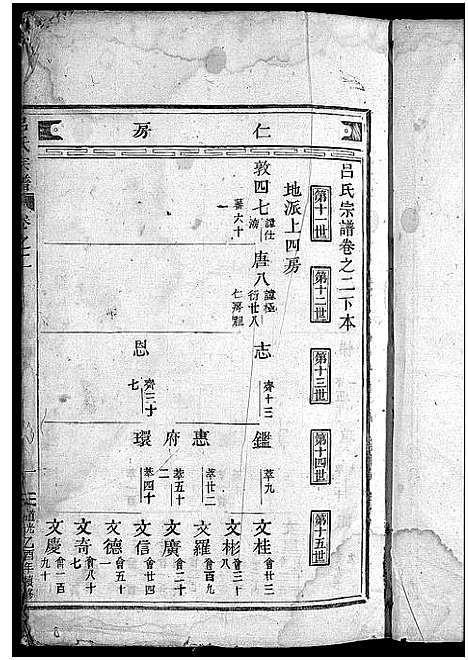 呂氏宗譜卷之二下本
第十一世
第十二世
第十三世
第十四世
第十五世
地派上四房
仁房
敦四七
諱仕
葬六十一
唐八
諱極
衍廿八
仁房祖
志
齊十三
恩
齊三十七
鑑
萃九
惠
萃廿二
府
萃五十二
環
萃四十
文桂
會廿三
文彬
會三十二
文羅
會百九
文廣
會二十
文信
會廿四
文德
會五十一
文奇
會八十七
文慶
會一百九十
呂氏宗譜
卷之二
道光乙酉年續修